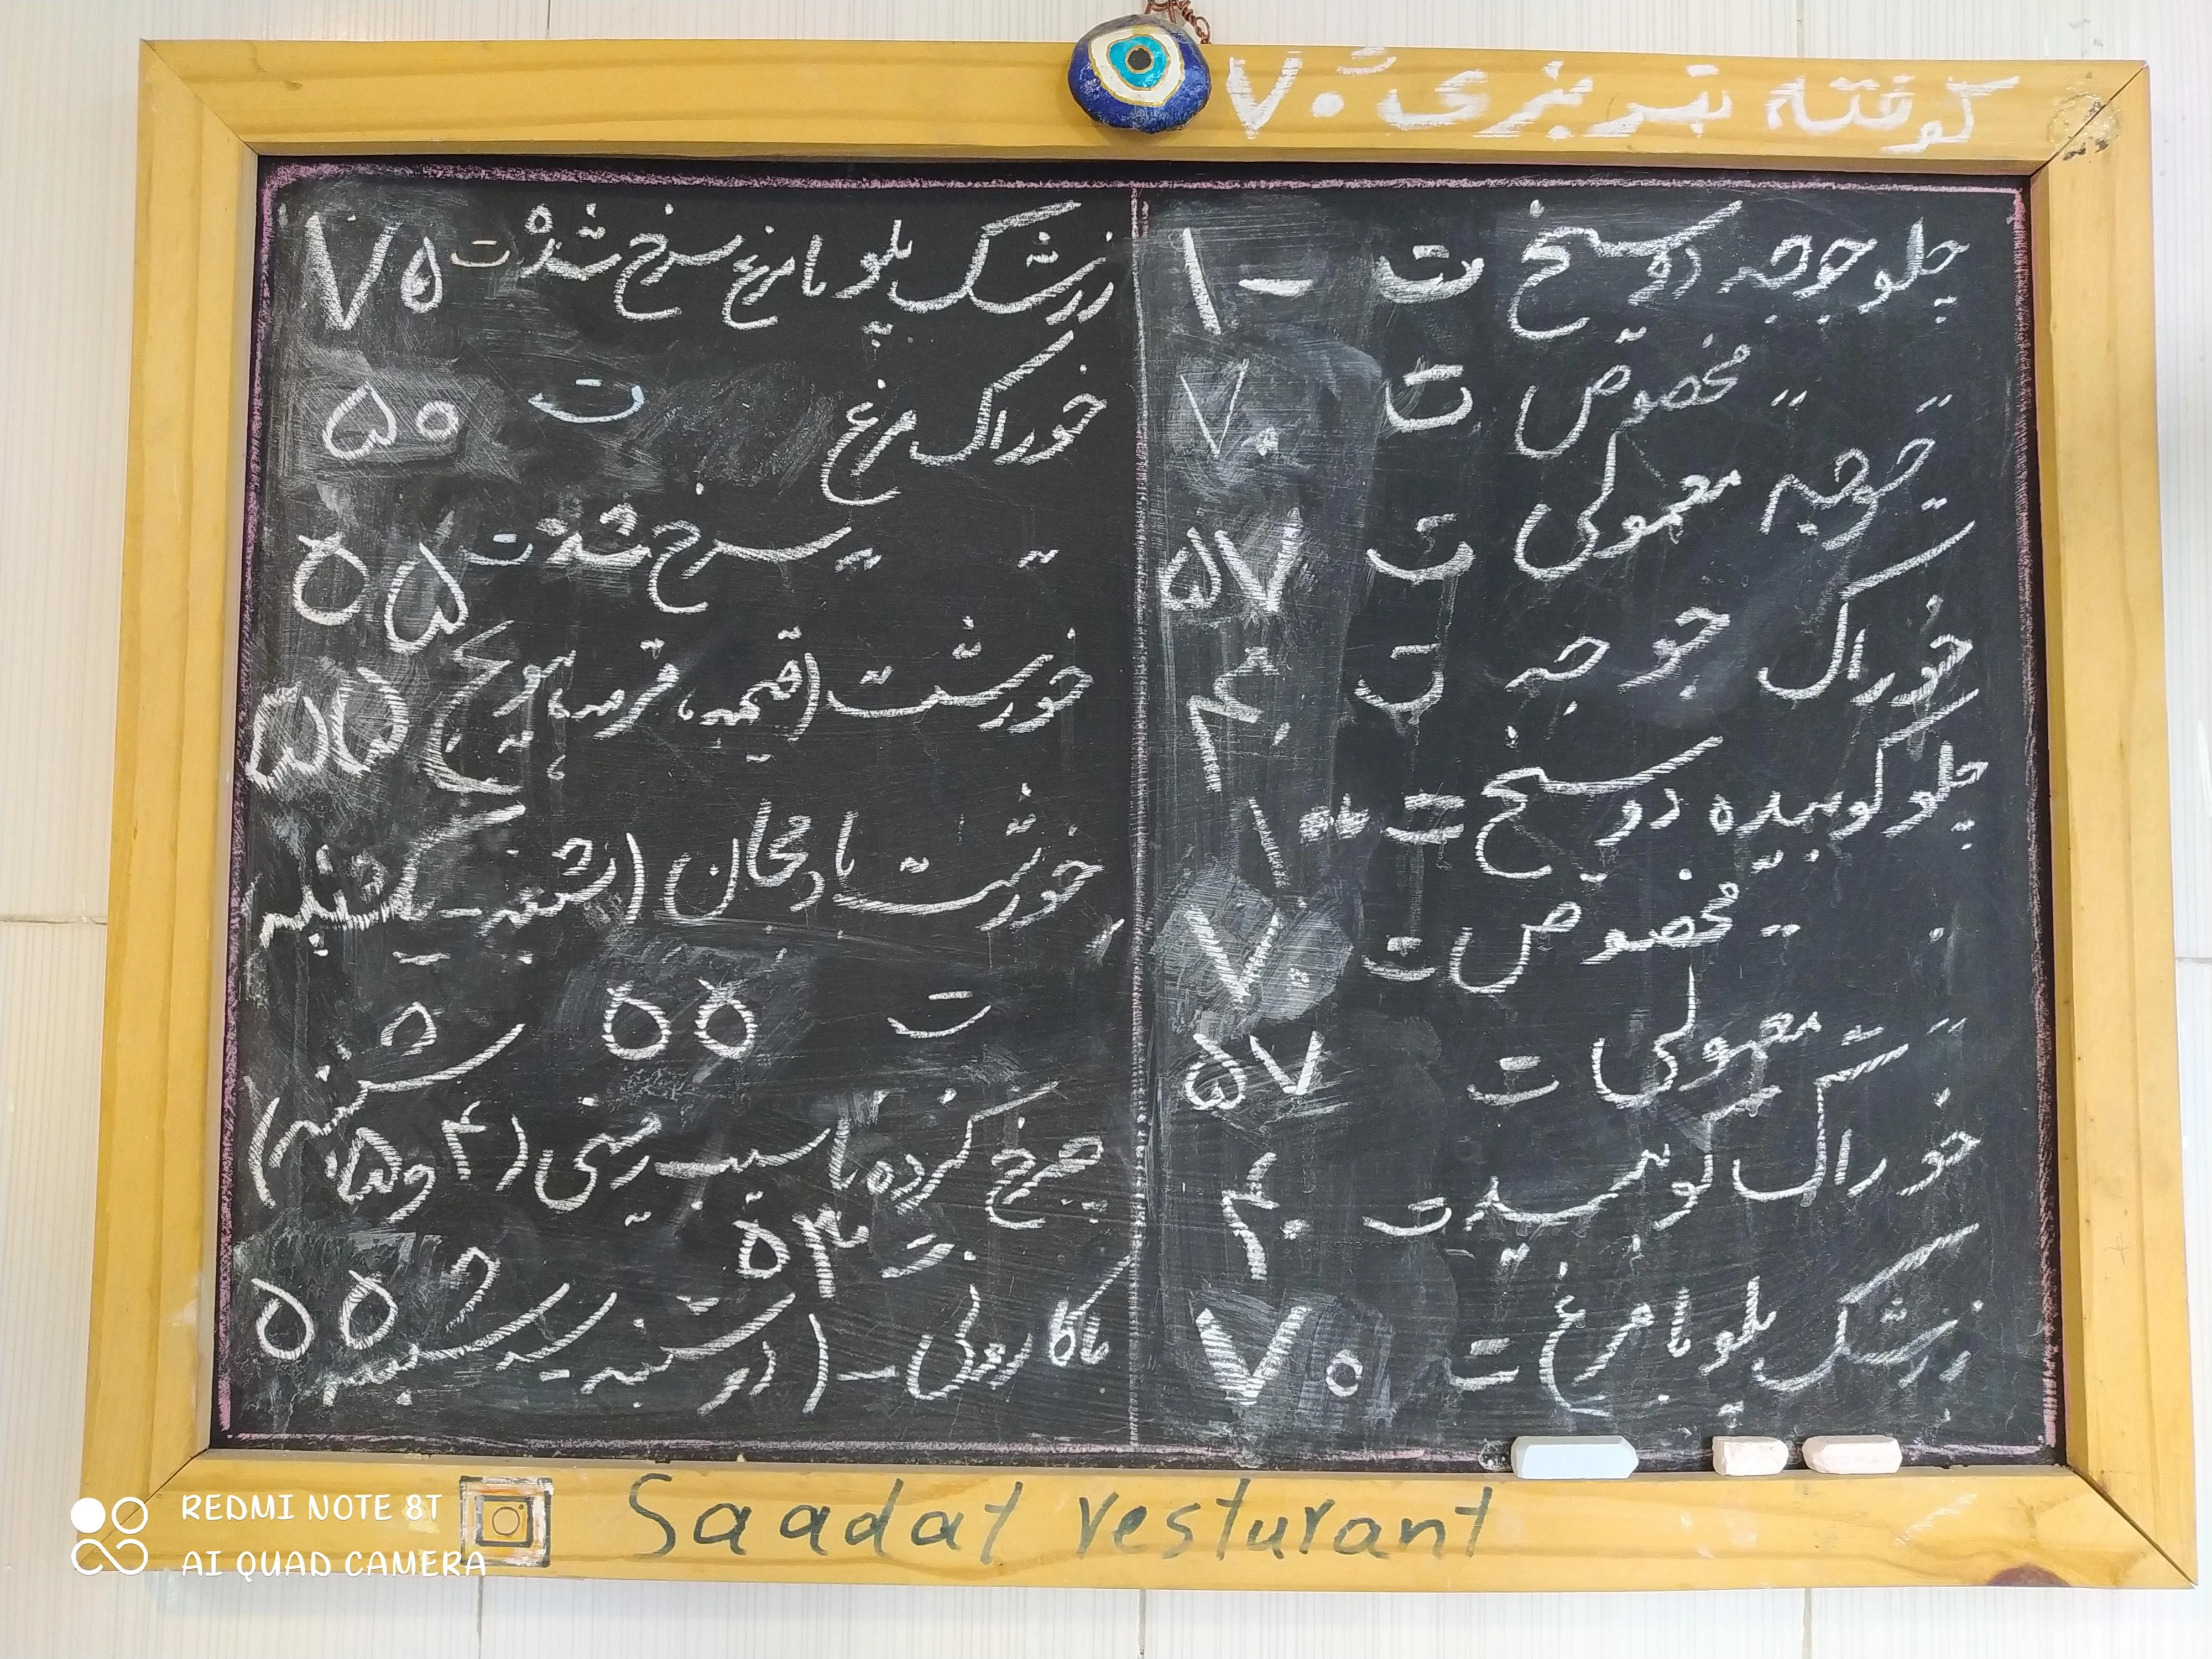 کوفته تبریزی ۷۰
چلو جوجه دو سیخ ت ۱۰۰
〃 〃 مخصوص ت ۷۰
〃 جوجه معمولی ت ۵۷
خوراک جوجه ت ۴۰
چلو کوبیده دو سیخ ت ۱۰۰
〃 مخصوص ت ۷۰
〃 معمولی ت ۵۷
خوراک کوبیده ت ۴۰
زرشک پلو با مرغ ت ۷۰
زرشک پلو با مرغ سرخ شده ت ۷۵
خوراک مرغ ت ۵۰
〃 〃 سرخ شده ت ۵۵
خورشت (قیمه، قرمه، هویج) ۵۵
خورشت بادمجان (شنبه - یکشنبه
ت ۵۵
چرخ کرده با سیب زمینی (۴ و ۵ شنبه)
ت ۵۳
ماکارونی - (دوشنبه - سه شنبه) ۵۵
Saadat resturant
REDMI NOTE 8T
AI QUAD CAMERA